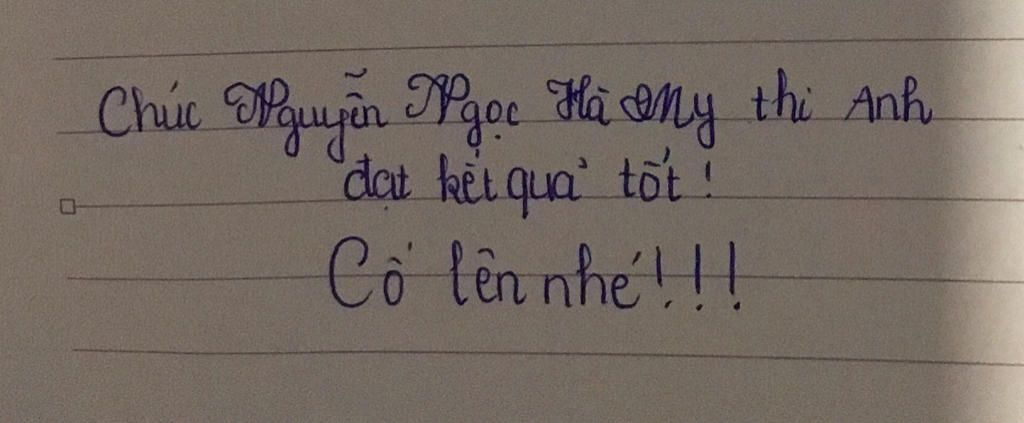 Chúc Nguyễn Ngọc Hà My thi Anh
đạt kết quả tốt!
Cố lên nhé!!!